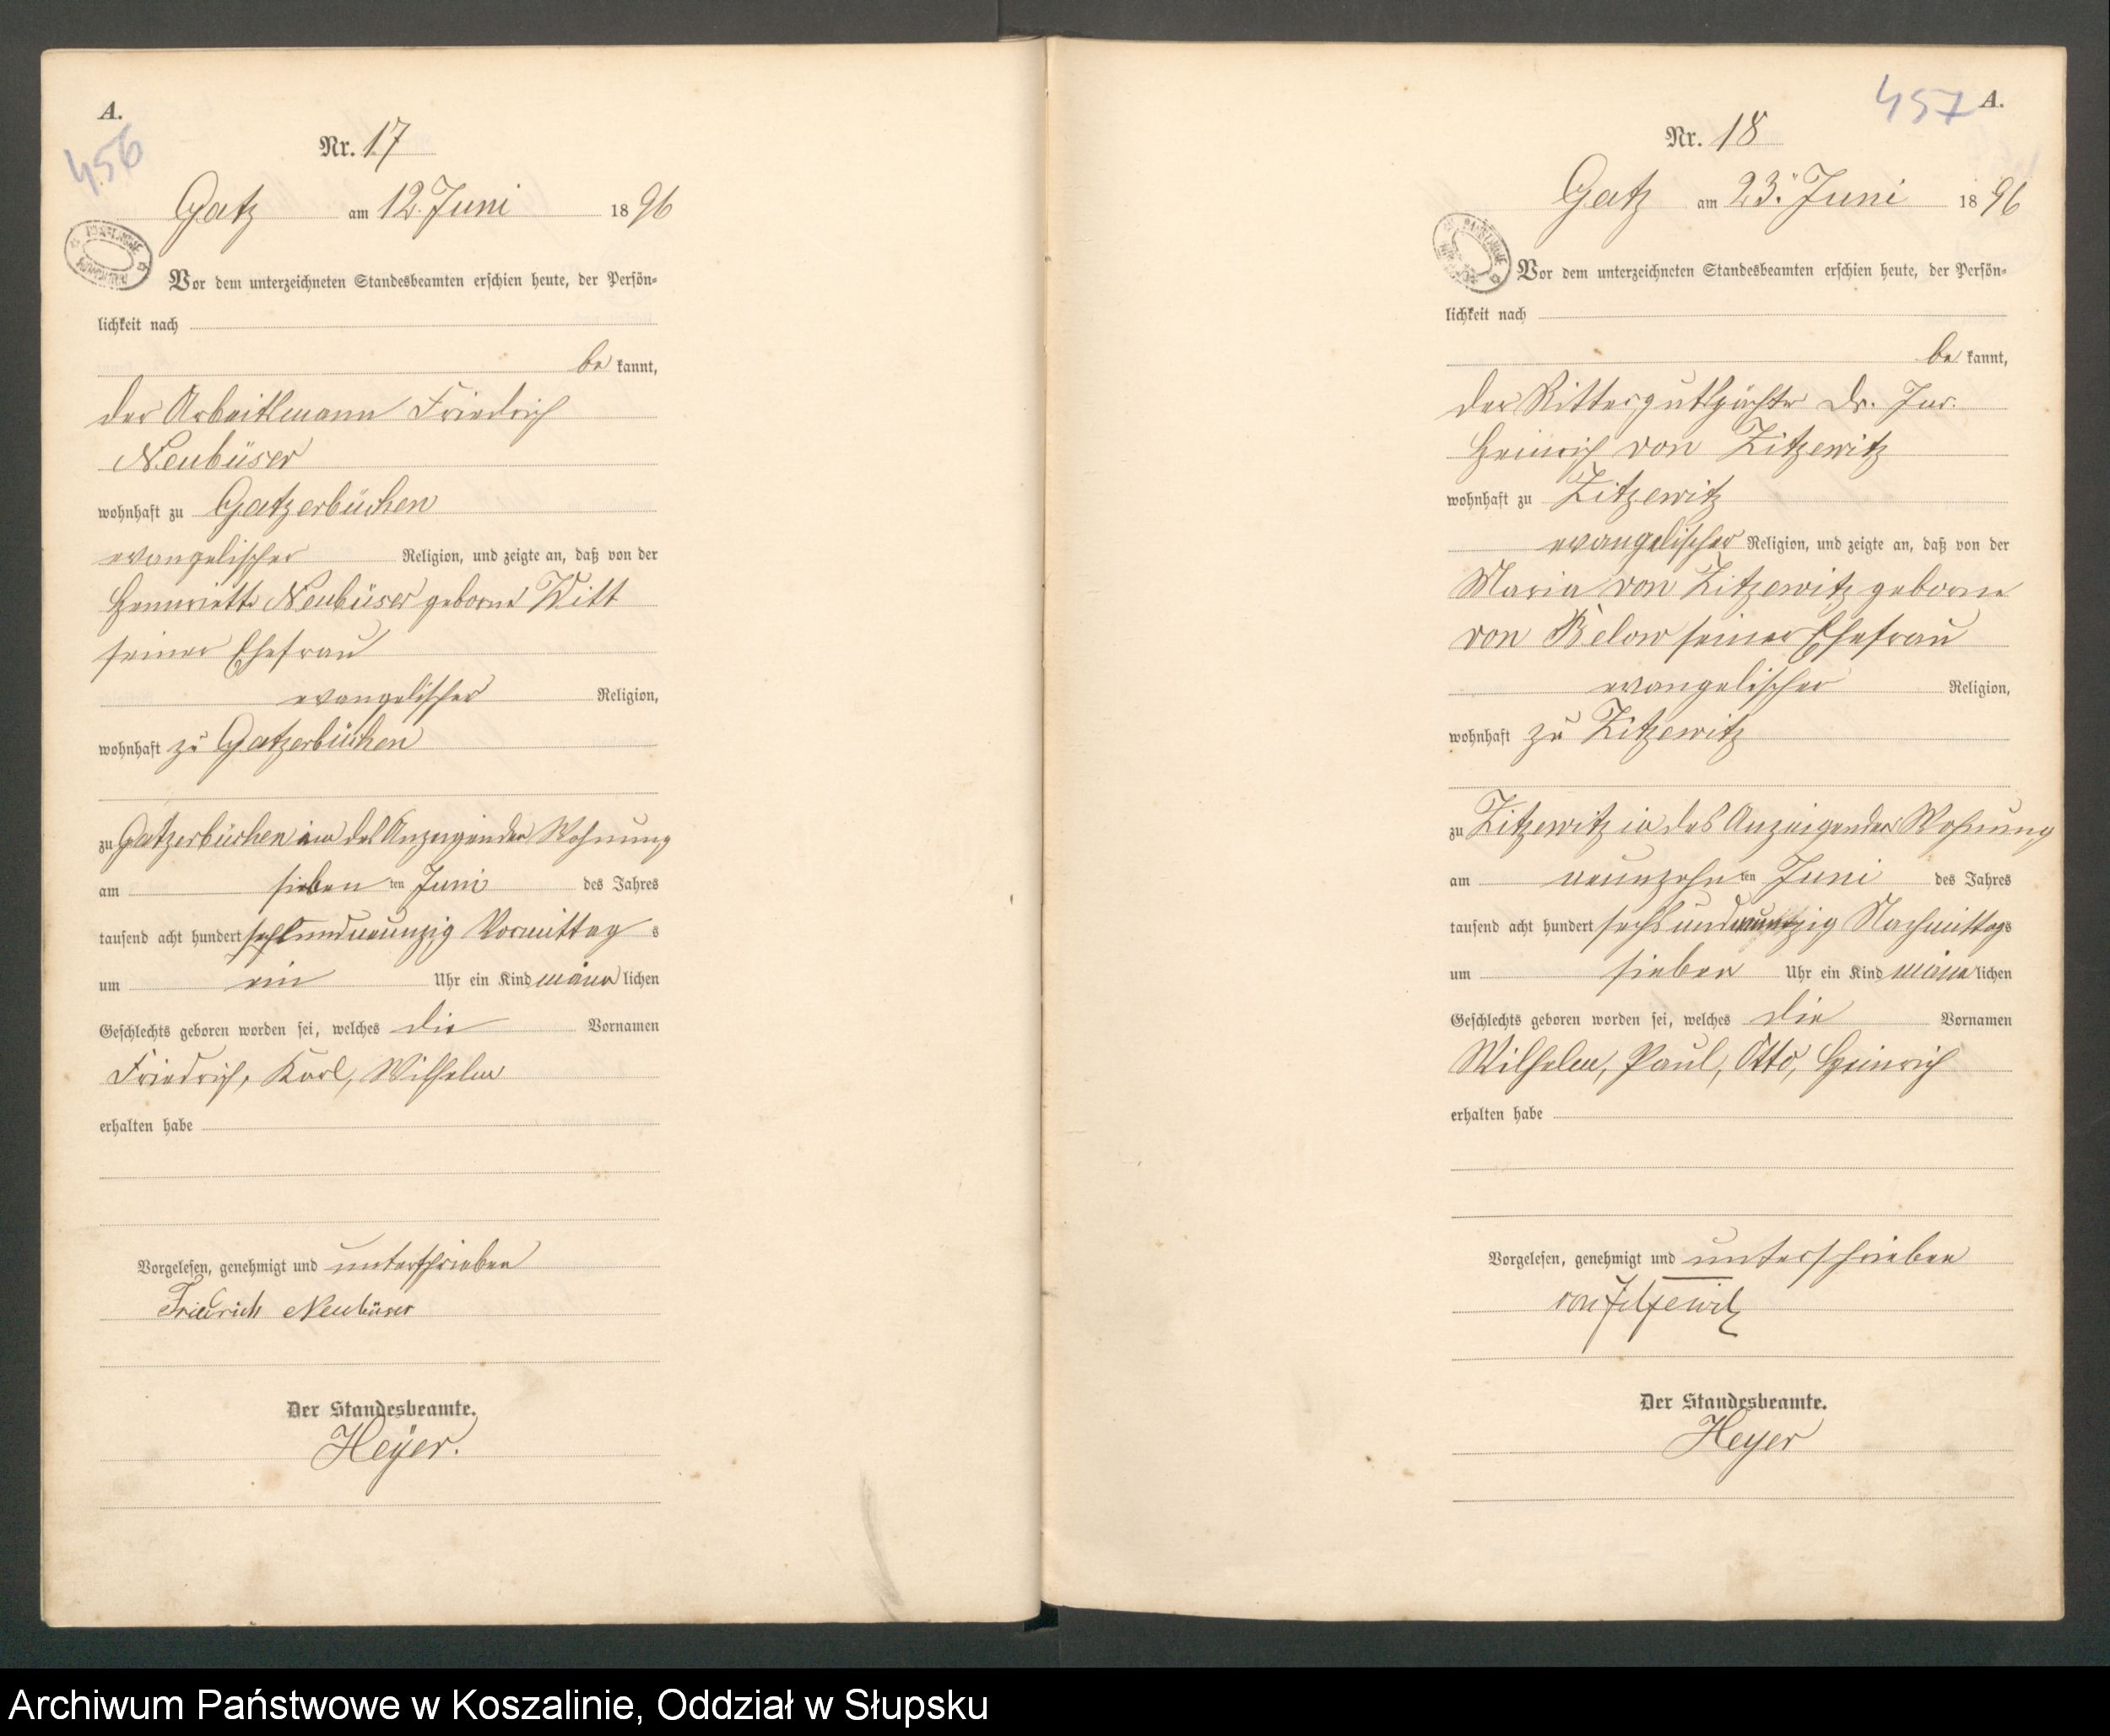 A.
456
Nr. 17
Gatz am 12. Juni 1896
Vor dem unterzeichneten Standesbeamten erschien heute, der Persön-
lichkeit nach
be kannt,
der Arbeitsmann Friedrich
Neubüser
wohnhaft zu Gatzerbüchen
evangelischer Religion, und zeigte an, daß von der
Henriette Neubüser geborne Witt
seiner Ehefrau
evangelischer Religion,
wohnhaft zu Gatzerbüchen
zu Gatzerbüchen in des Anzeigenden Wohnung
am sieben ten Juni des Jahres
tausend acht hundert sechsundneunzig Vormittag s
um ein Uhr ein Kind männ lichen
Geschlechts geboren worden sei, welches die Vornamen
Friedrich, Karl, Wilhelm
erhalten habe
Vorgelesen, genehmigt und unterschrieben
Friedrich Neubüser
Der Standesbeamte.
Heyer.
457 A.
Nr. 18
Gatz am 23. Juni 1896
Vor dem unterzeichneten Standesbeamten erschien heute, der Persön-
lichkeit nach
be kannt,
der Rittergutspächter Dr. Jur.
Heinrich von Zitzewitz
wohnhaft zu Zitzewitz
evangelischer Religion, und zeigte an, daß von der
Maria von Zitzewitz geborne
von Below seiner Ehefrau
evangelischer Religion,
wohnhaft zu Zitzewitz
zu Zitzewitz in des Anzeigenden Wohnung
am neunzehn ten Juni des Jahres
tausend acht hundert sechsundneunzig Nachmittags
um sieben Uhr ein Kind männ lichen
Geschlechts geboren worden sei, welches die Vornamen
Wilhelm, Paul, Otto, Heinrich
erhalten habe
Vorgelesen, genehmigt und unterschrieben
von Zitzewitz
Der Standesbeamte.
Heyer
Archiwum Państwowe w Koszalinie, Oddział w Słupsku